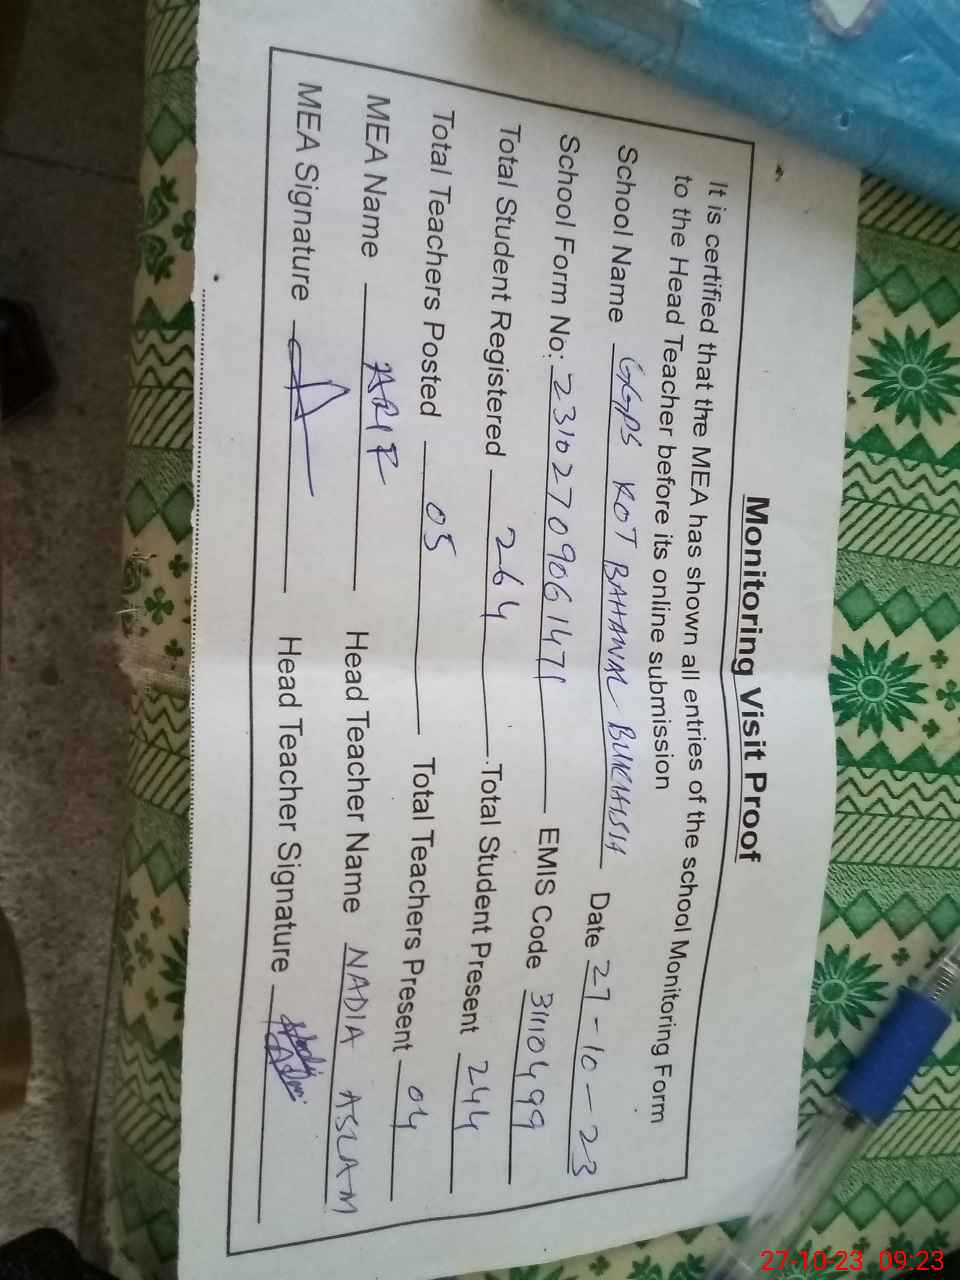 Monitoring Visit Proof
It is certified that the MEA has shown all entries of the school Monitoring Form
to the Head Teacher before its online submission
School Name GGPS KOT BAHAWAL BUKHUSIA Date 27-10-23
School Form No: 2310270906147 EMIS Code 31110499
Total Student Registered 264 Total Student Present 244
Total Teachers Posted 05 Total Teachers Present 04
MEA Name ARIF Head Teacher Name NADIA ASLAM
MEA Signature Head Teacher Signature
27-10-23 09:23